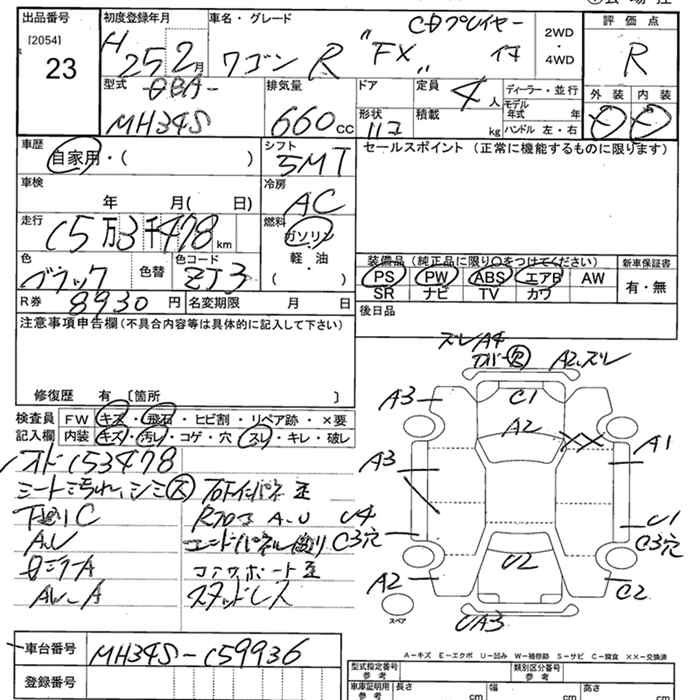 出品番号
[2054]
23
初度登録年月
H 25 2月
車名・グレード
CDプレイヤー
ワゴンR "FX"
2WD
・
4WD
評価点
R
外装 内装
型式
DBA-
MH34S
排気量
660cc
ドア
形状
定員
4人
積載
kg
ディーラー・並行
モデル
年式 年
ハンドル 左・右
車歴
自家用・( )
シフト
5MT
セールスポイント (正常に機能するものに限ります)
車検
年 月( 日)
冷房
AC
走行
15万3千478km
燃料
ガソリン
軽・油
・
( )
色
ブラック
色替
色コード
ZJ3
装備品(純正品に限り○をつけてください)
新車保証書
PS PW ABS エアB AW
SR ナビ TV カワ
有・無
R券 8930円
名変期限 月 日
後日品
注意事項申告欄(不具合内容等は具体的に記入して下さい)
修復歴 有 〔箇所 〕
検査員
記入欄
FW キズ・飛石・ヒビ割・リペア跡・×要
内装 キズ・汚レ・コゲ・穴・スレ・キレ・破レ
オド153478
シート汚れ、シミ大
下廻りC
AU
スタッドレス
スレA4
A2.スレ
A3
C1
A2
XX
A1
A3
U4
U1
C3穴
C3穴
A2
U2
C2
UA3
スペア
A－キズ E－エクボ U－凹み W－補修跡 S－サビ C－腐食 ××－交換済
車台番号
MH34S-159936
登録番号
型式指定番号
参考
類別区分番号
参考
車庫証明用
参考
長さ cm
幅 cm
高さ cm